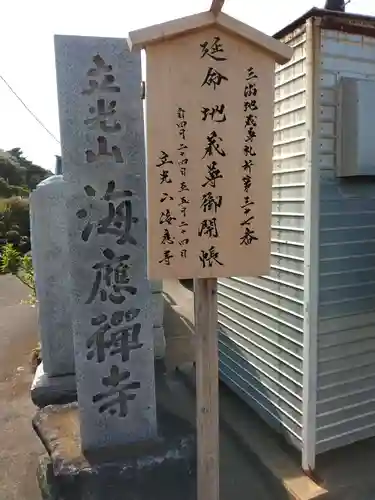 立光山
海應禅寺
三浦地蔵尊札所第三十一番
延命地蔵尊御開帳
自四月二十四日至五月二十四日
立光山海應寺